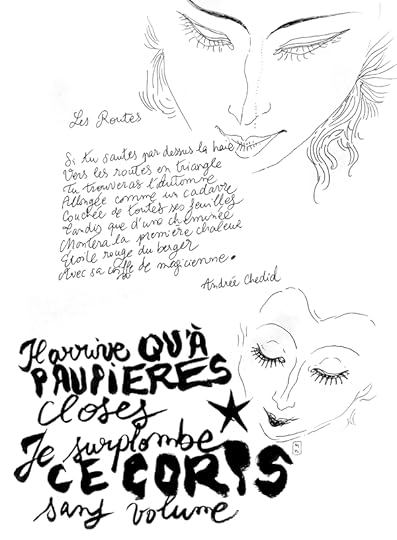 Les Routes
Si tu sautes par dessus la haie
Vers les routes en triangle
Tu trouveras l'automne
Allongée comme un cadavre
Couchée de toutes ses feuilles
Tandis que d'une cheminée
Montera la première chaleur
Etoile rouge du berger
Avec sa coiffe de magicienne.
Andrée Chedid
Il arrive QU'À
PAUPIERES
closes
Je surplombe
CE CORPS
sans volume